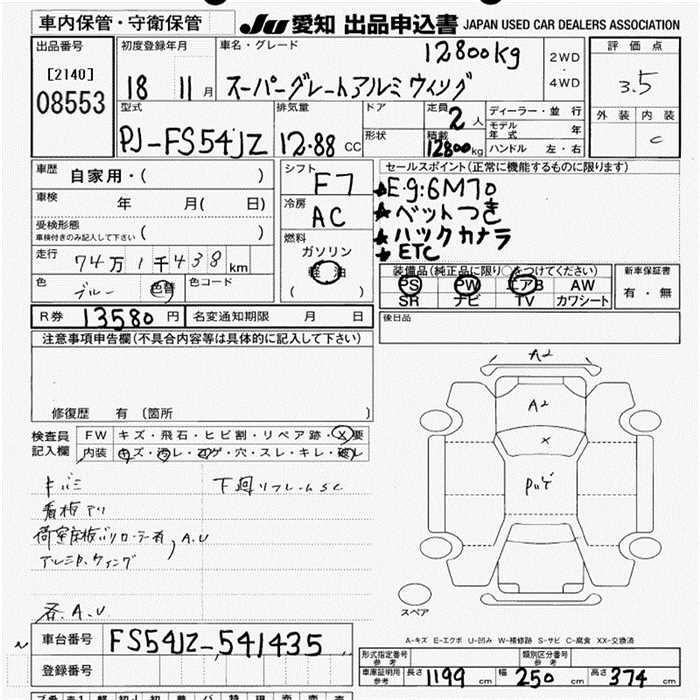 車内保管・守衛保管
JU 愛知 出品申込書 JAPAN USED CAR DEALERS ASSOCIATION
出品番号
[2140]
08553
初度登録年月
18 11 月
車名・グレード
12800kg
スーパーグレートアルミウィング
2WD
・
4WD
評価点
3.5
外装 内装
C
型式
PJ-FS54JZ
排気量
12.88 CC
ドア
形状
定員
2 人
積載
12800kg
ディーラー・並行
モデル年式 年
ハンドル 左・右
車歴 自家用・( )
車検 年 月( 日)
受検形態
車検付きのみ記入して下さい ( )
走行 74万1千438km
色 ブルー 色替 色コード
R券 13580 円 名変通知期限 月 日
シフト
F7
冷房
AC
燃料
ガソリン
軽油
( )
セールスポイント(正常に機能するものに限ります)
★E.g:6M70
★ベットつき
★バックカメラ
★ETC
装備品(純正品に限り○をつけてください)
PS PW エアB AW
SR ナビ TV カワシート
新車保証書
有・無
後日品
注意事項申告欄(不具合内容等は具体的に記入して下さい)
修復歴 有(箇所 )
検査員
記入欄
FW キズ・飛石・ヒビ割・リペア跡・X要
内装 キズ・汚レ・コゲ・穴・スレ・キレ・破レ
キバミ
看板アリ
下廻リフレームSC
アルミウィング
各A.U
A2
A2
X
スペア
A-キズ E-エクボ U-凹み W-補修跡 S-サビ C-腐食 XX-交換済
車台番号 FS54JZ-541435
登録番号
形式指定番号
参考
類別区分番号
参考
車庫証明用
参考
長さ 1199 cm 幅 250 cm 高さ 374 cm